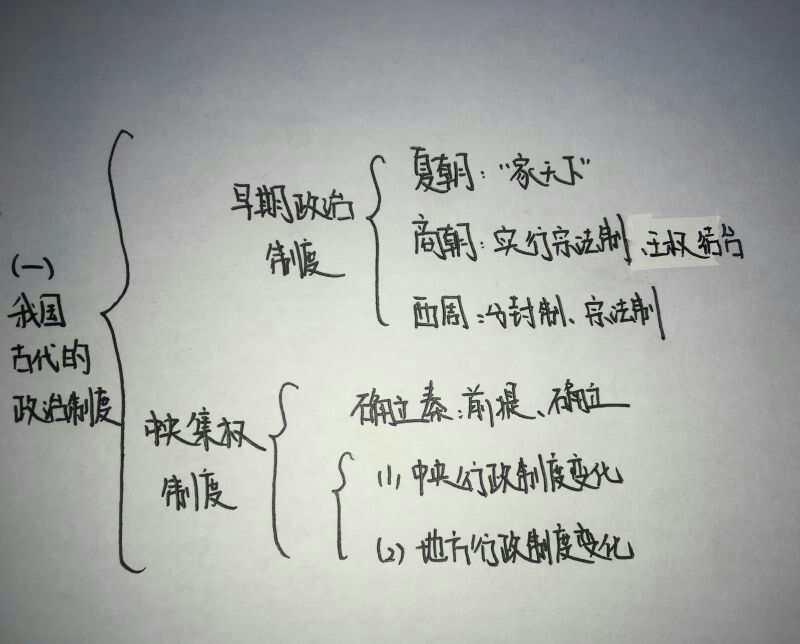 (一)
我国
古代的
政治制度
早期政治
制度
夏朝："家天下"
商朝：实行宗法制、王权结合
西周：分封制、宗法制
中央集权
制度
确立秦：前提、确立
(1) 中央行政制度变化
(2) 地方行政制度变化